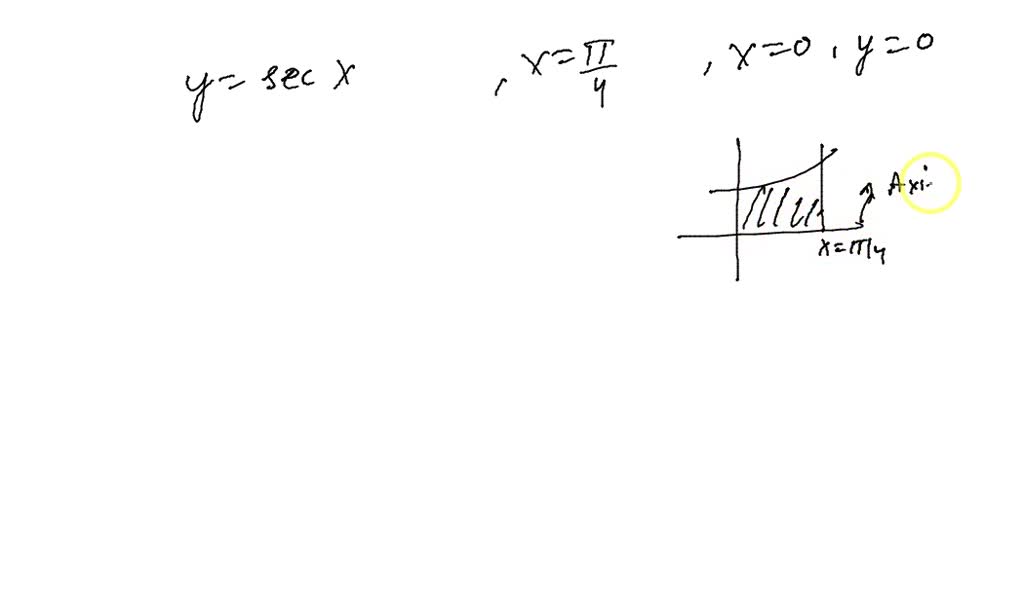 y = sec x , x = π/4 , x = 0 , y = 0
Axi
x = π/4